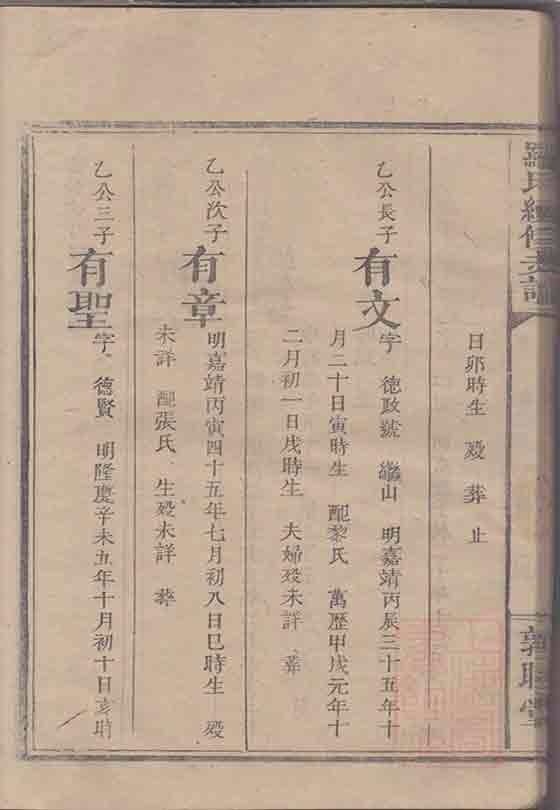 羅氏續修支譜
敦睦堂
日卯時生 殁 葬 止
乙公長子 有文 字 德政 號 繼山 明嘉靖丙辰三十五年十
月二十日寅時生 配黎氏 萬歷甲戌元年十
二月初一日戌時生 夫婦殁未詳 葬
乙公次子 有章 明嘉靖丙寅四十五年七月初八日巳時生 殁
未詳 配張氏 生殁未詳 葬
乙公三子 有聖 字 德賢 明隆慶辛未五年十月初十日亥時